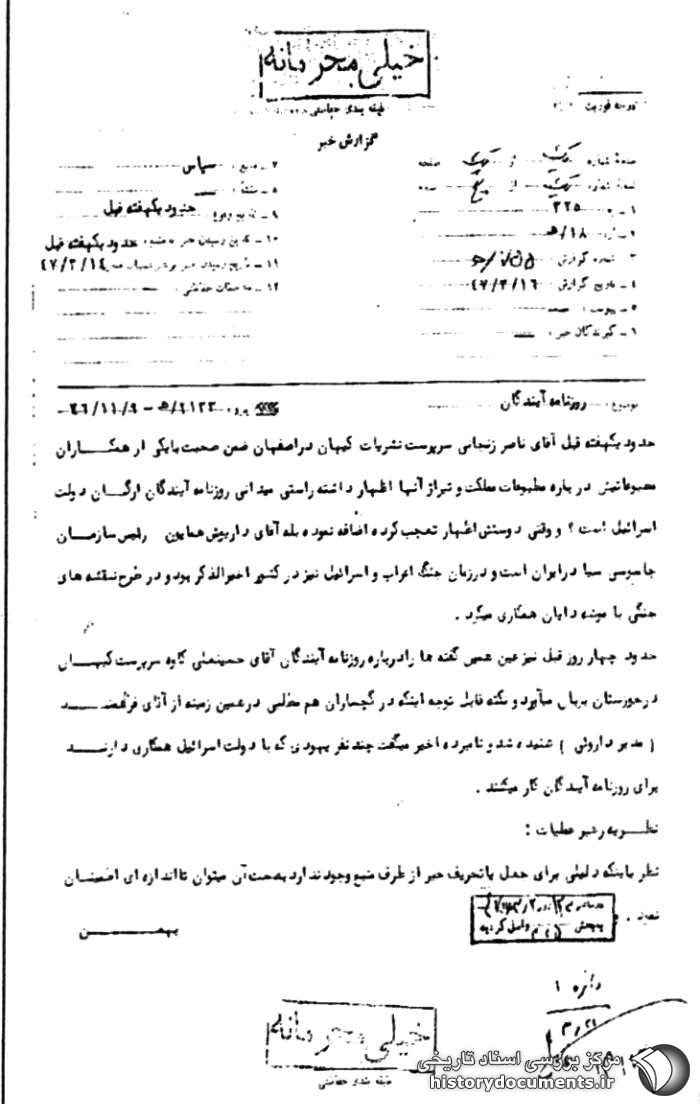 خیلی محرمانه
طبقه بندی حفاظتی
درجه فوریت
گزارش خبر
صفحهٔ شماره یک از یک صفحه
نسخهٔ شماره یک از پنج نسخه
۱ - به ۳۲۵
۲ - از ۱۸/ﻫ
۳ - شماره گزارش
۴ - تاریخ گزارش ۴۷/۳/۱۶
۵ - پیوست
۶ - گیرندگان خبر
۷ - منبع : سپاس
۸ - منشاء
۹ - تاریخ وقوع حدود یکهفته قبل
۱۰ - تاریخ رسیدن خبر به منبع حدود یکهفته قبل
۱۱ - تاریخ رسیدن خبر برهبر عملیات ۴۷/۳/۱۴
۱۲ - ملاحظات حفاظتی
موضوع : روزنامه آیندگان
حدود یکهفته قبل آقای ناصر زنجانی سرپرست نشریات کیهان در اصفهان ضمن صحبت بایکی از همکاران
مطبوعاتیش در باره مطبوعات مملکت و تیراژ آنها اظهار داشته راستی میدانی روزنامه آیندگان ارگان دولت
اسرائیل است ؟ و وقتی دوستش اظهار تعجب کرده اضافه نموده بله آقای داریوش همایون رئیس سازمان
جاسوسی سیا در ایران است و در زمان جنگ اعراب و اسرائیل نیز در کشور اخیرالذکر بود و در طرح نقشه های
جنگی با موشه دایان همکاری میکرد .
حدود چهار روز قبل نیز عین همین گفته ها را درباره روزنامه آیندگان آقای حسینعلی کاوه سرپرست کیهان
در خوزستان بزبان میآورد و نکته قابل توجه اینکه در گچساران هم مطلبی در همین زمینه از آقای فرهمند
( مدیر داروئی ) شنیده شد و نامبرده اخیر میگفت چند نفر یهودی که با دولت اسرائیل همکاری دارند
برای روزنامه آیندگان کار میکنند .
نظریه رهبر عملیات :
نظر باینکه دلیلی برای جعل یا تحریف خبر از طرف منبع وجود ندارد بصحت آن میتوان تا اندازه ای اطمینان
نمود .
بهمن
واصل گردید
دائره ۱
۳/۲۱
خیلی محرمانه
طبقه بندی حفاظتی
مرکز بررسی اسناد تاریخی
historydocuments.ir